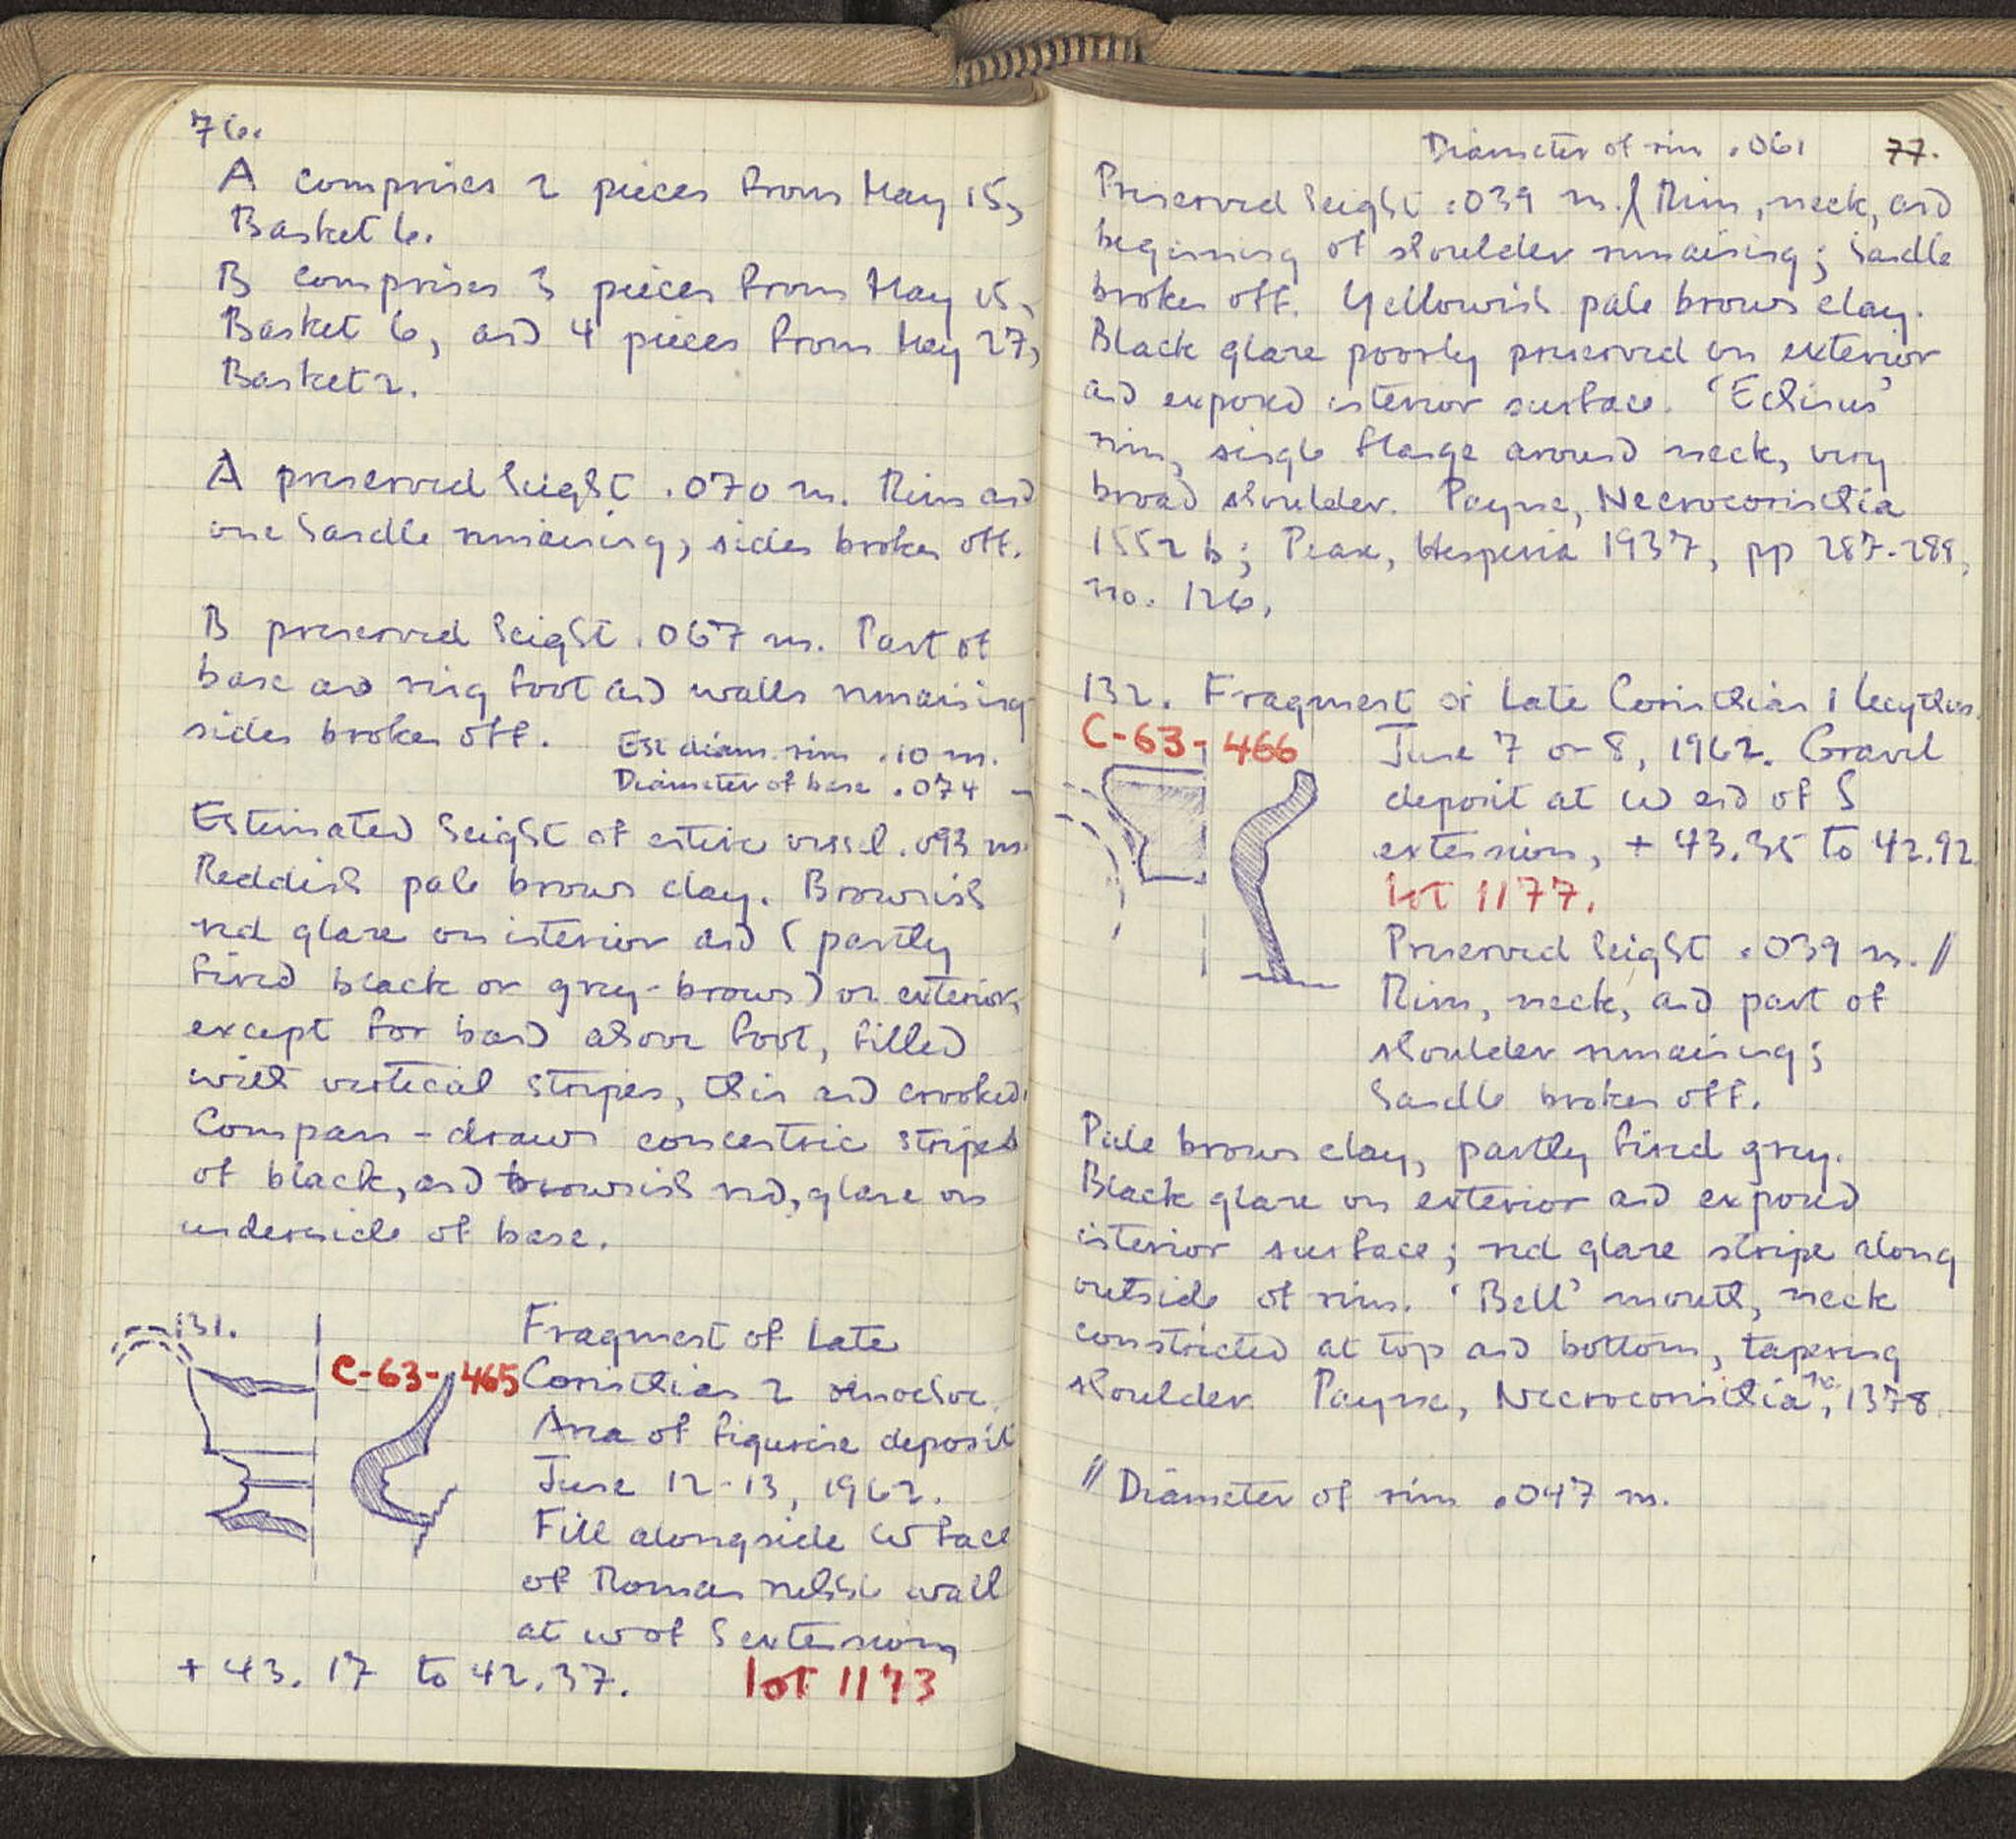 76.
A comprises 2 pieces from May 15,
Basket 6.
B comprises 3 pieces from May 15,
Basket 6, and 4 pieces from May 27,
Basket 2.
A preserved height .070 m. Rim and
one handle remaining, sides broken off.
B preserved height .067 m. Part of
base and ring foot and walls remaining
sides broken off. Est diam. rim .10 m.
Diameter of base .074
Estimated height of entire vessel .093 m.
Reddish pale brown clay. Brownish
red glaze on interior and (partly
fired black or grey-brown) on exterior,
except for band above foot, filled
with vertical stripes, thin and crooked.
Compass-drawn concentric stripes
of black, and brownish red, glaze on
underside of base.
131.
C-63-465
Fragment of Late
Corinthian 2 oinochoe.
Area of figurine deposit
June 12-13, 1962.
Fill alongside W face
of Roman rubble wall
at W of S extension,
+43.17 to 42.37. lot 1173
Diameter of rim .061
77.
Preserved height .039 m. / Rim, neck, and
beginning of shoulder remaining; handle
broken off. Yellowish pale brown clay.
Black glaze poorly preserved on exterior
and exposed interior surface. 'Echinus'
rim, single flange around neck, very
broad shoulder. Payne, Necrocorinthia
1552 b; Pease, Hesperia 1937, pp 287-288,
no. 126.
132. Fragment of Late Corinthian 1 lecythos.
C-63-466
June 7 or 8, 1962. Gravel
deposit at W end of S
extension, +43.35 to 42.92
lot 1177.
Preserved height .039 m. //
Rim, neck, and part of
shoulder remaining;
handle broken off.
Pale brown clay, partly fired grey.
Black glaze on exterior and exposed
interior surface; red glaze stripe along
outside of rim. 'Bell' mouth, neck
constricted at top and bottom, tapering
shoulder. Payne, Necrocorinthia, no. 1378.
// Diameter of rim .047 m.